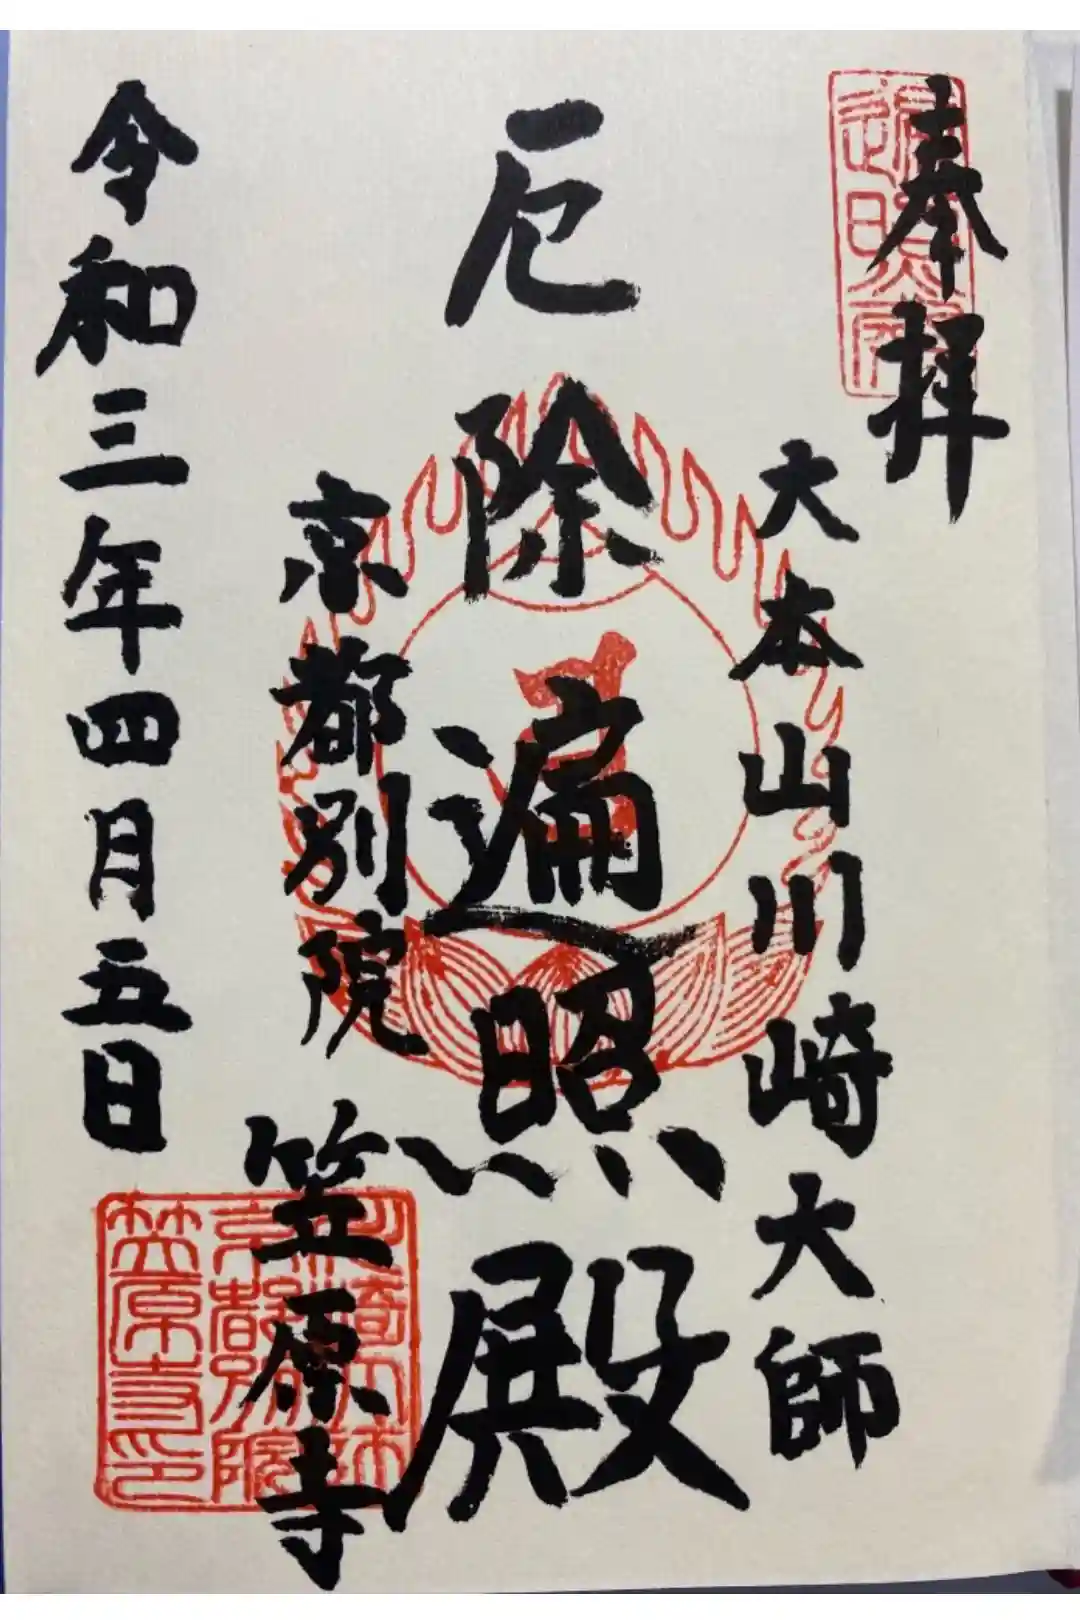 奉拝
大本山川崎大師
厄除遍照殿
京都別院
笠原寺
令和三年四月五日
遍照殿
川崎大師
京都別院
笠原寺印